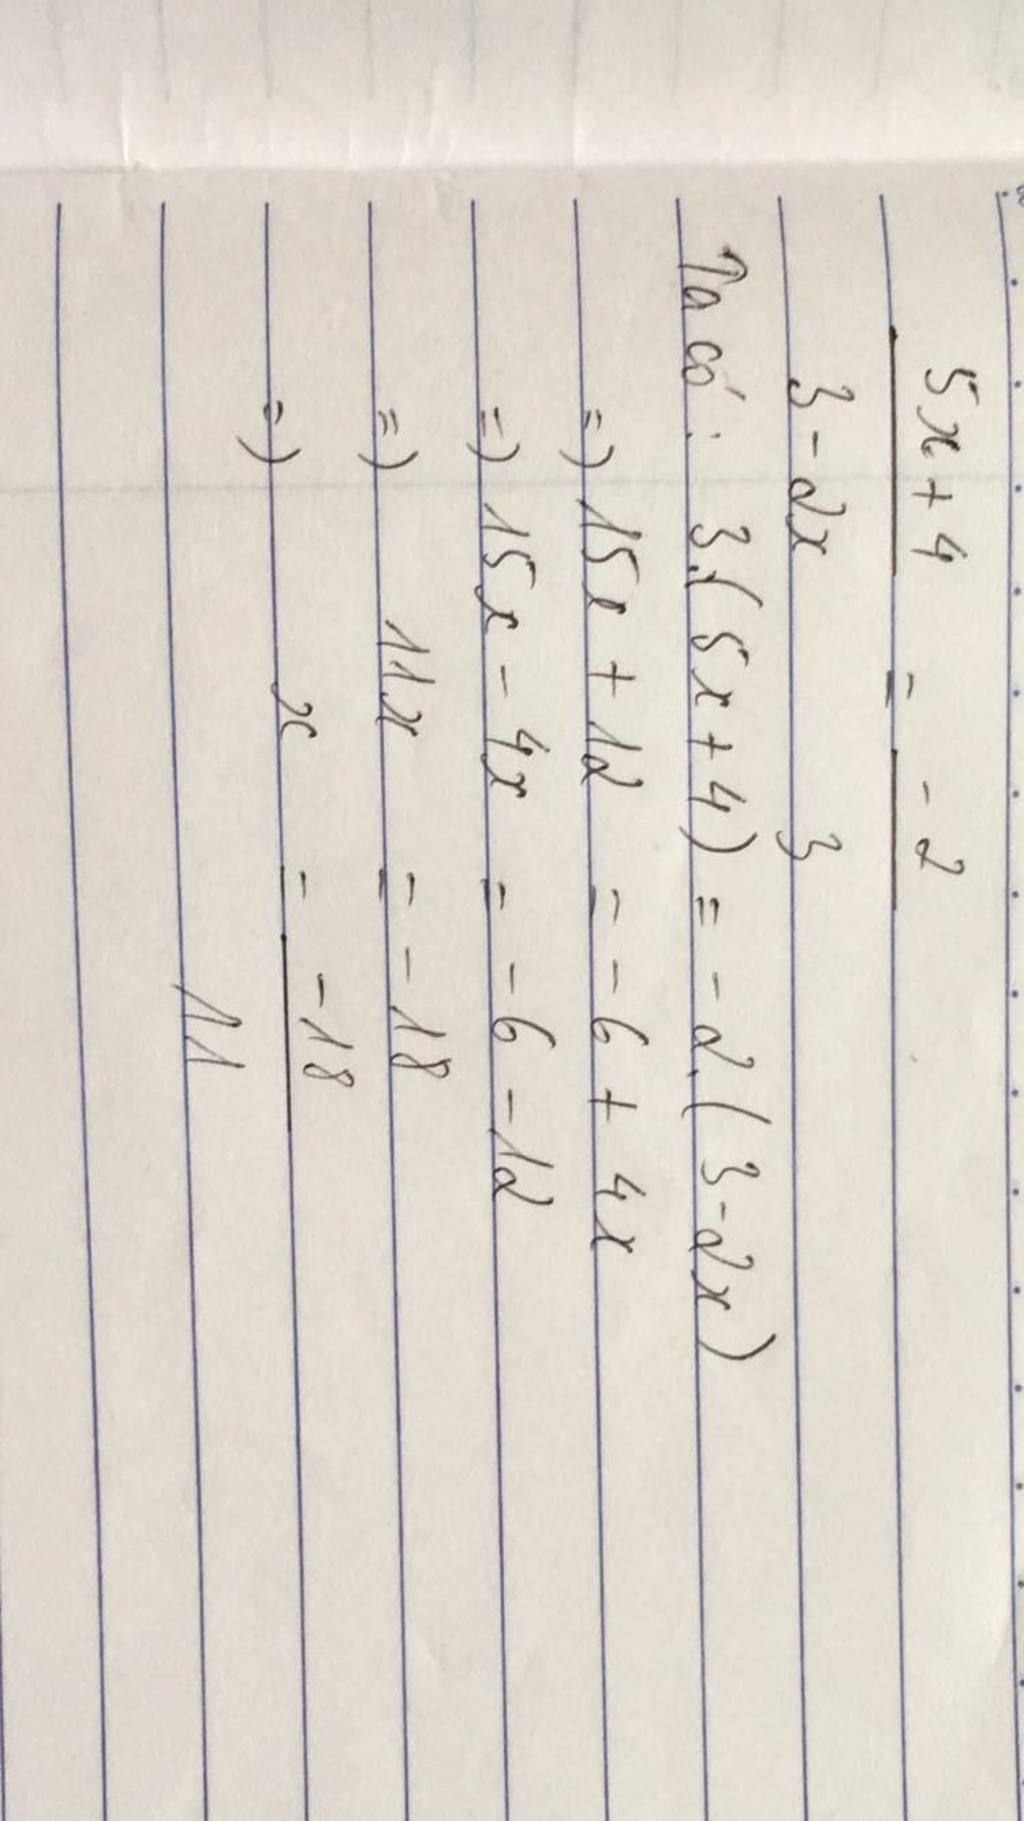 5x+4 / 3-2x = -2 / 3
Ta có: 3.(5x+4) = -2.(3-2x)
=) 15x + 12 = -6 + 4x
=) 15x - 4x = -6 - 12
=) 11x = -18
=) x = -18 / 11